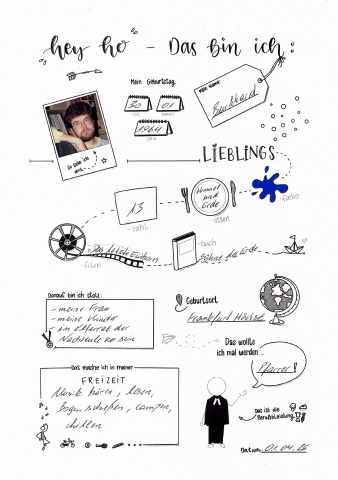 hey ho - Das bin ich:
Mein Geburtstag
30 01
TAG MONAT
1964
JAHR
Mein Name:
Burkhard
So sehe ich
aus
LIEBLINGS
13
-zahl
Himmel
und
Erde
-essen
-farbe
Das letzte Einhorn
-film
-buch
Söhne der Erde
Darauf bin ich stolz:
- meine Frau
- meine Kinder
- im Elternrat der
Geburtsort
Frankfurt Höchst
Das wollte
ich mal werden ...
Pfarrer!
Das mache ich in meiner
FREIZEIT
Musik hören, lesen,
Bogen schießen, campen,
chillen
Das ist die
Berufskleidung
Datum: